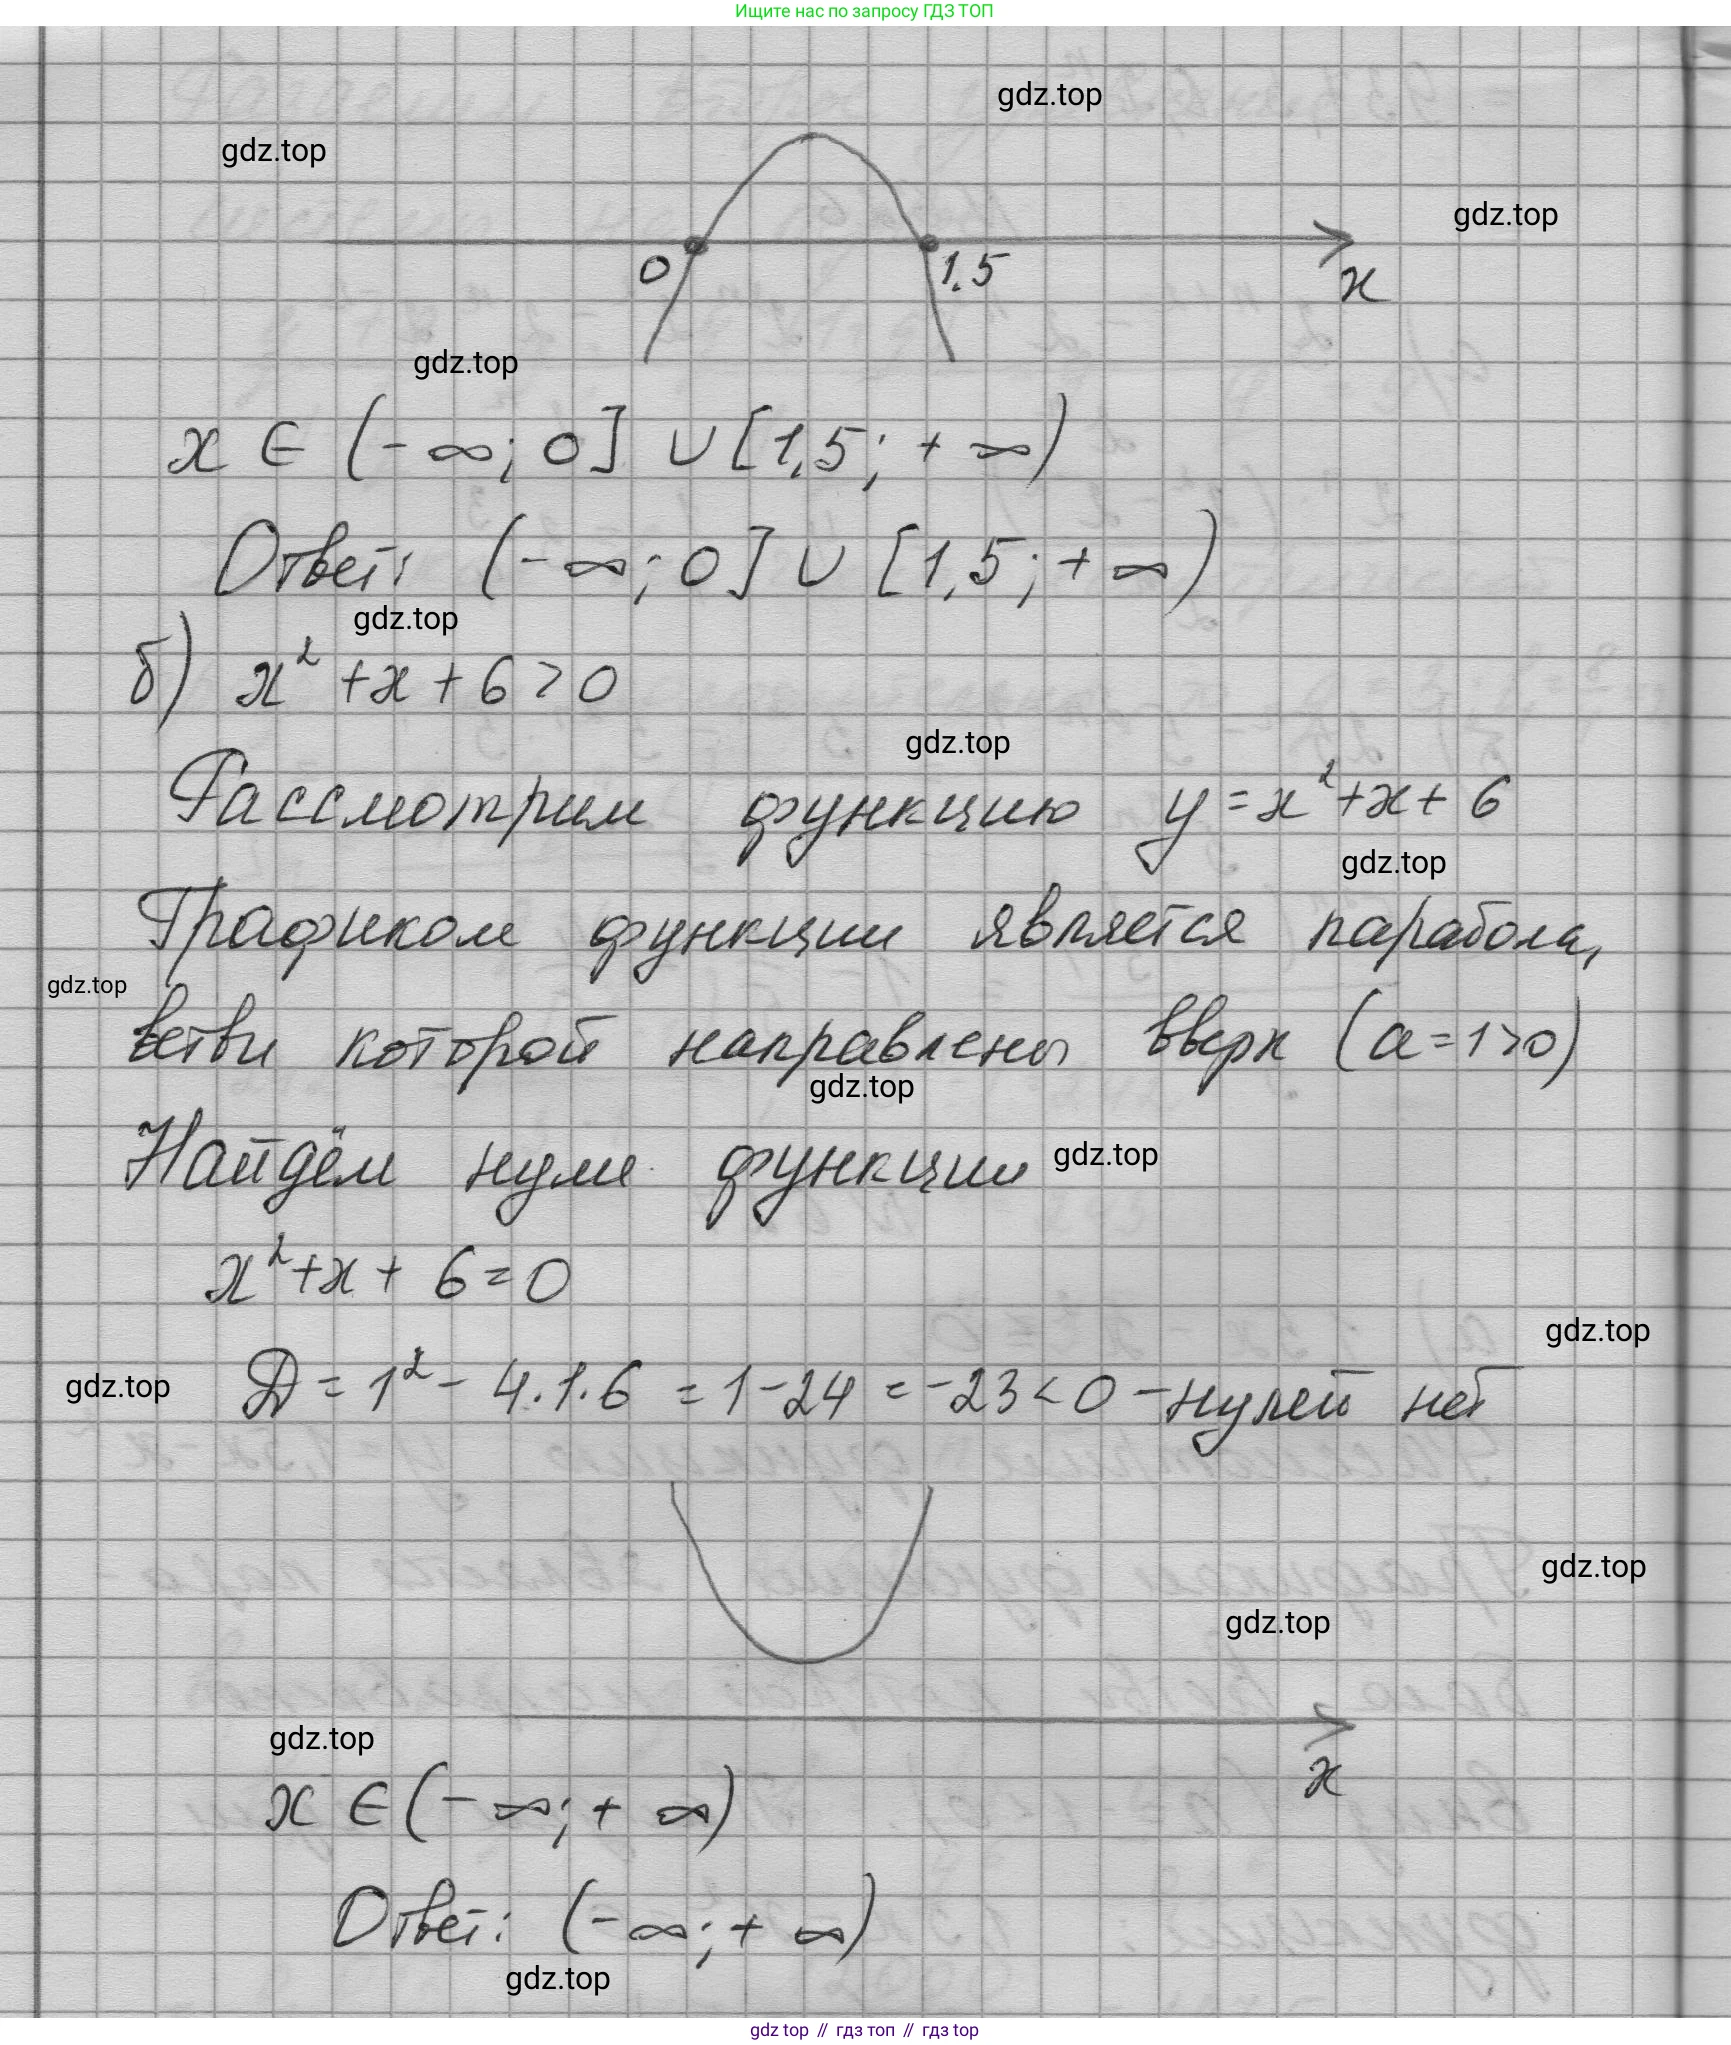 Ищите нас по запросу ГДЗ ТОП
gdz.top
gdz.top
gdz.top
0
1,5
x
gdz.top
x ∈ (-∞; 0] ∪ [1,5; +∞)
Ответ: (-∞; 0] ∪ [1,5; +∞)
gdz.top
б) x² + x + 6 > 0
gdz.top
Рассмотрим функцию y = x² + x + 6
gdz.top
Графиком функции является парабола,
gdz.top
ветви которой направлены вверх (a = 1 > 0)
gdz.top
Найдём нули функции
gdz.top
x² + x + 6 = 0
gdz.top
gdz.top
D = 1² - 4 · 1 · 6 = 1 - 24 = -23 < 0 - нулей нет
gdz.top
gdz.top
gdz.top
x
x ∈ (-∞; +∞)
Ответ: (-∞; +∞)
gdz.top
gdz top // гдз топ // гдз top